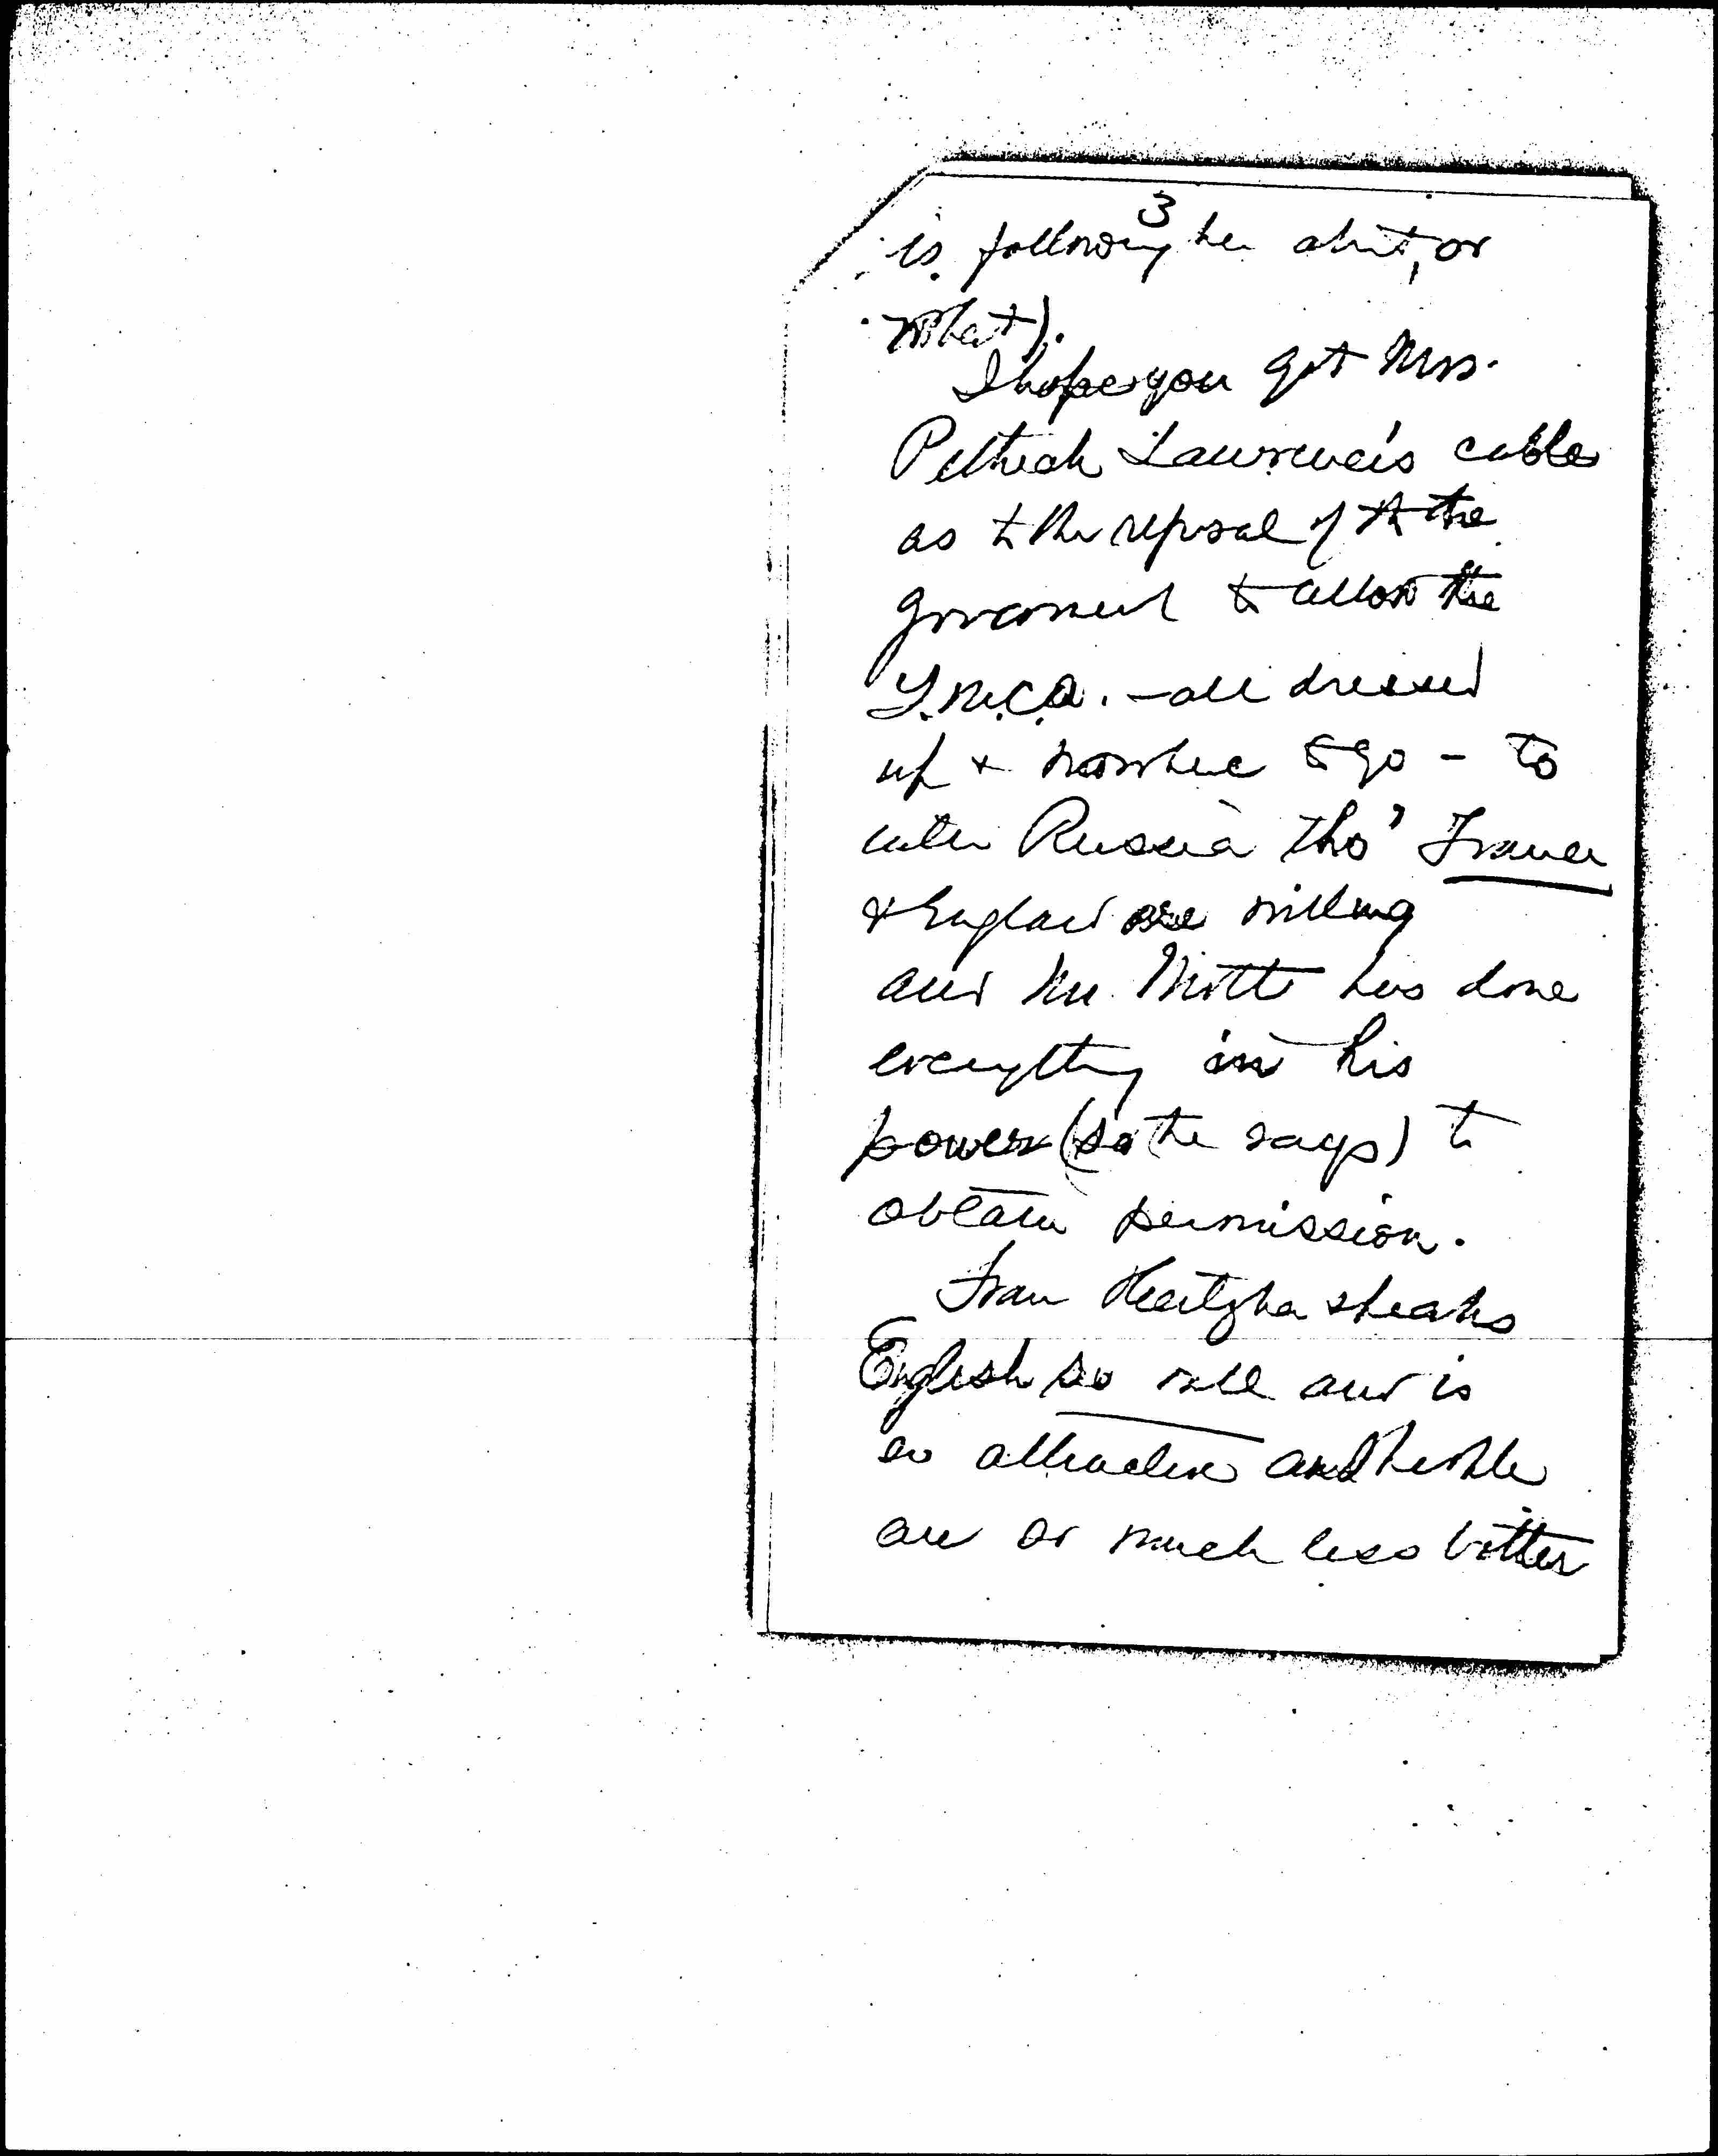 3
is following her about, or
what).
I hope you got Mrs.
Pethick Lawrence's cable
as to the refusal of th the
government to allow the
Y.M.C.A. - all dressed
up & nowhere to go - to
enter Russia tho' France
& England are willing
and Mr. Mott has done
everything in his
power (so he says) to
obtain permission.
Frau speaks
English so well and is
so attractive and people
are so much less bitter